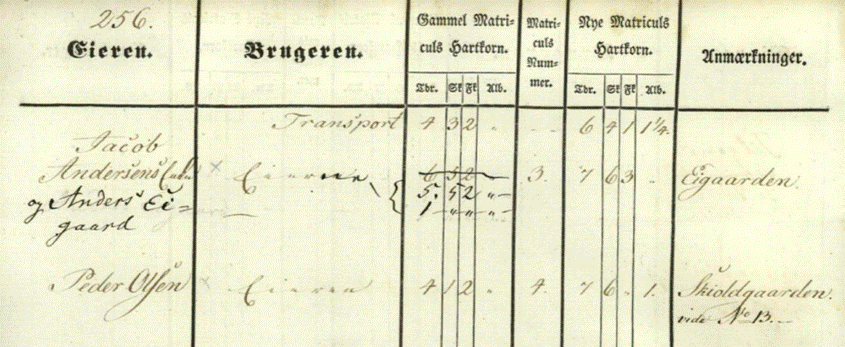 256.
Eieren. Brugeren. Gammel Matriculs Hartkorn. Matriculs Nummer. Nye Matriculs Hartkorn. Anmærkninger.
Tdr. Sk Fk Alb. Tdr. Sk Fk Alb.
Transport 4 3 2 " - - 6 4 1 1 1/4.
Jacob
Andersens Enke × Eieren 6 5 2 - 3. 7 6 3 " Eigaarden.
og Anders Ei= — { 5. 5 2 " -
gaard 1 " " " -
Peder Olsen × Eieren 4 1 2 " 4. 7 6 " 1. Skioldgaarden.
vide No 13. -